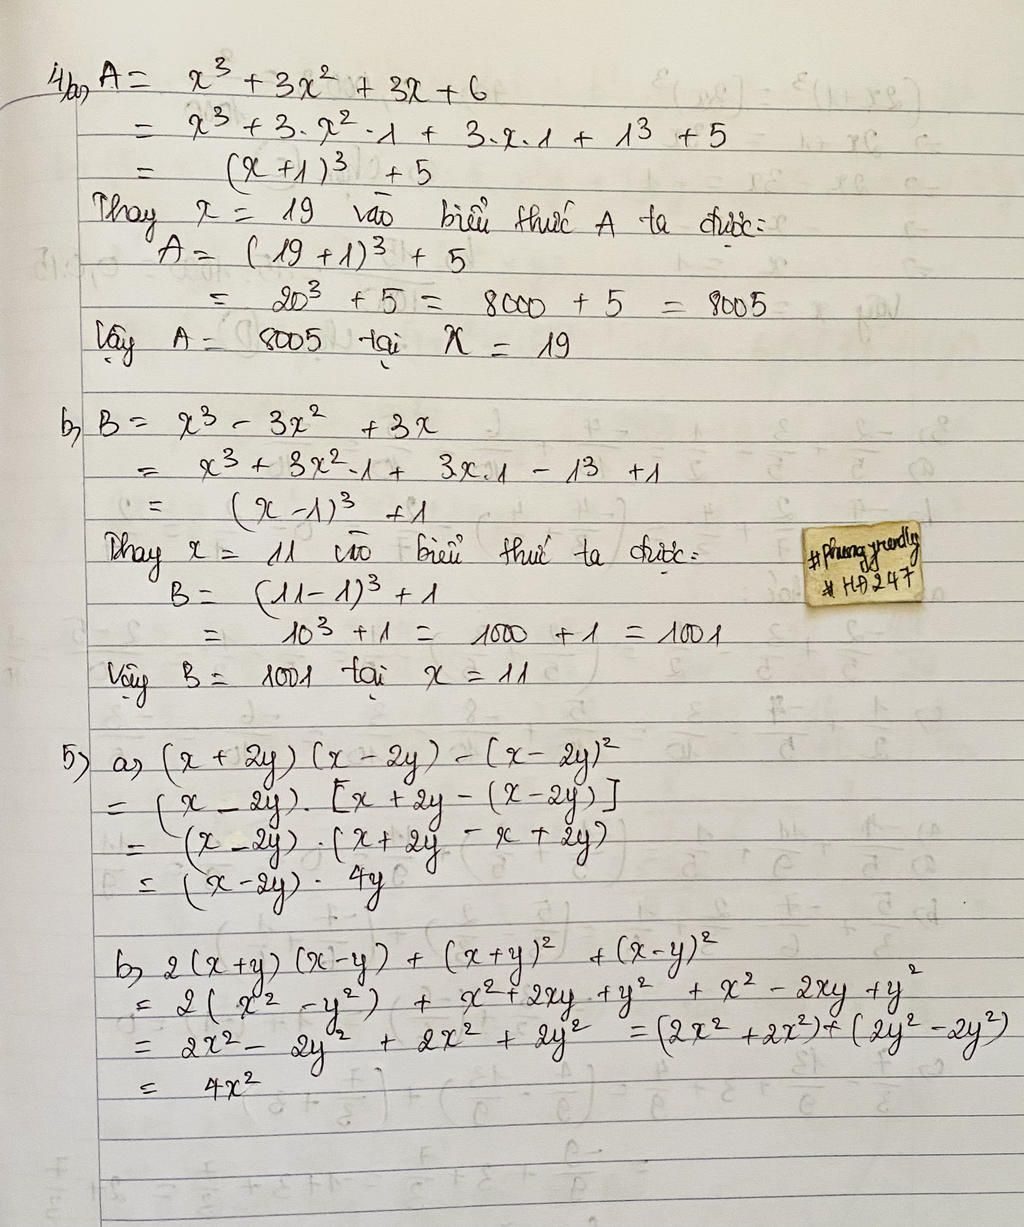 4/a, A = x³ + 3x² + 3x + 6
= x³ + 3.x².1 + 3.x.1 + 1³ + 5
= (x + 1)³ + 5
Thay x = 19 vào biểu thức A ta được:
A = (19 + 1)³ + 5
= 20³ + 5 = 8000 + 5 = 8005
Vậy A = 8005 tại x = 19
b, B = x³ - 3x² + 3x
= x³ + 3x².1 + 3x.1 - 1³ + 1
= (x - 1)³ + 1
Thay x = 11 vào biểu thức ta được:
B = (11 - 1)³ + 1
= 10³ + 1 = 1000 + 1 = 1001
Vậy B = 1001 tại x = 11
#phungyrendly
#HĐ247
5) a, (x + 2y)(x - 2y) - (x - 2y)²
= (x - 2y).[x + 2y - (x - 2y)]
= (x - 2y).(x + 2y - x + 2y)
= (x - 2y). 4y
b, 2(x + y)(x - y) + (x + y)² + (x - y)²
= 2(x² - y²) + x² + 2xy + y² + x² - 2xy + y²
= 2x² - 2y² + 2x² + 2y² = (2x² + 2x²) + (2y² - 2y²)
= 4x²